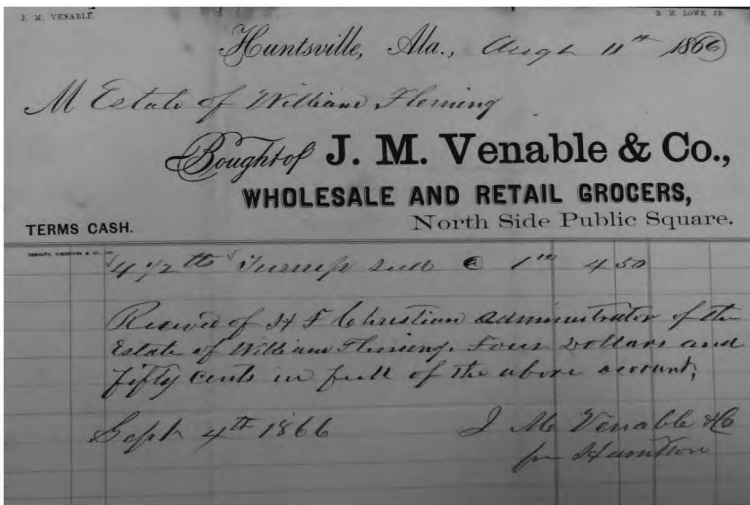 J. M. VENABLE.
B. M. LOWE JR.
Huntsville, Ala., Augt 11th 1866
M Estate of William Fleming
Bought of J. M. Venable & Co.,
WHOLESALE AND RETAIL GROCERS,
TERMS CASH.
North Side Public Square.
4 1/2 lb Turnip seed @ 1 00 4 50
Received of H F Christian administrator of the
Estate of William Fleming. Four Dollars and
fifty cents in full of the above account,
Sept 4th 1866 J M Venable & Co